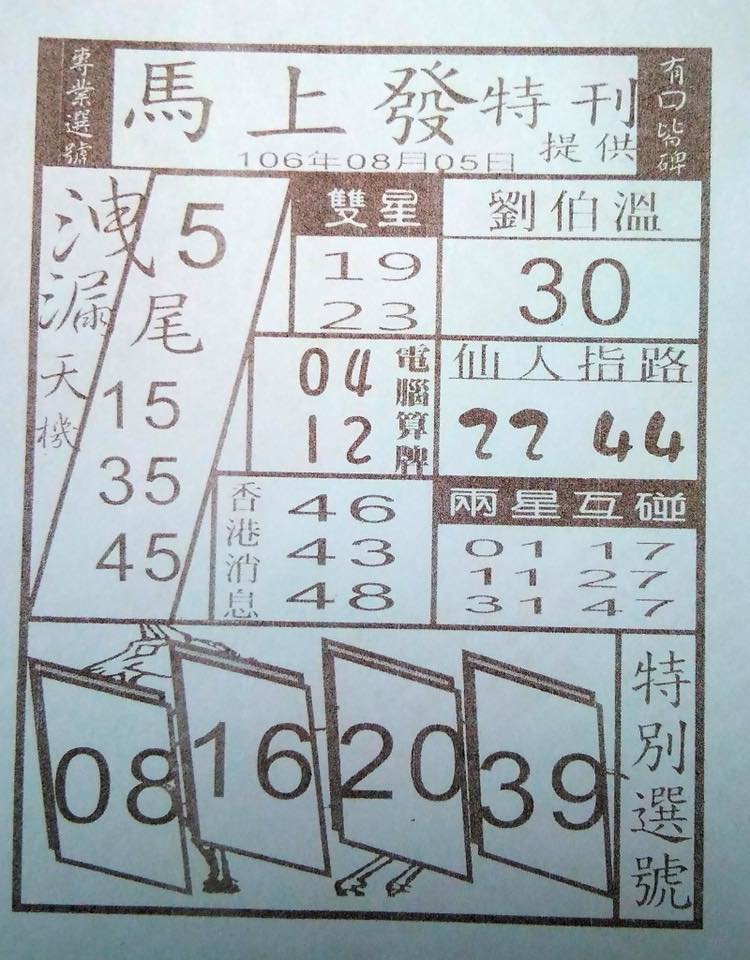 專業選號
馬上發特刊
有口皆碑
提供
106年08月05日
洩漏天機
5
尾
15
35
45
雙星
19
23
劉伯溫
30
04
12
電腦算牌
仙人指路
22 44
香港消息
46
43
48
兩星互碰
01 17
11 27
31 47
08 16 20 39
特別選號